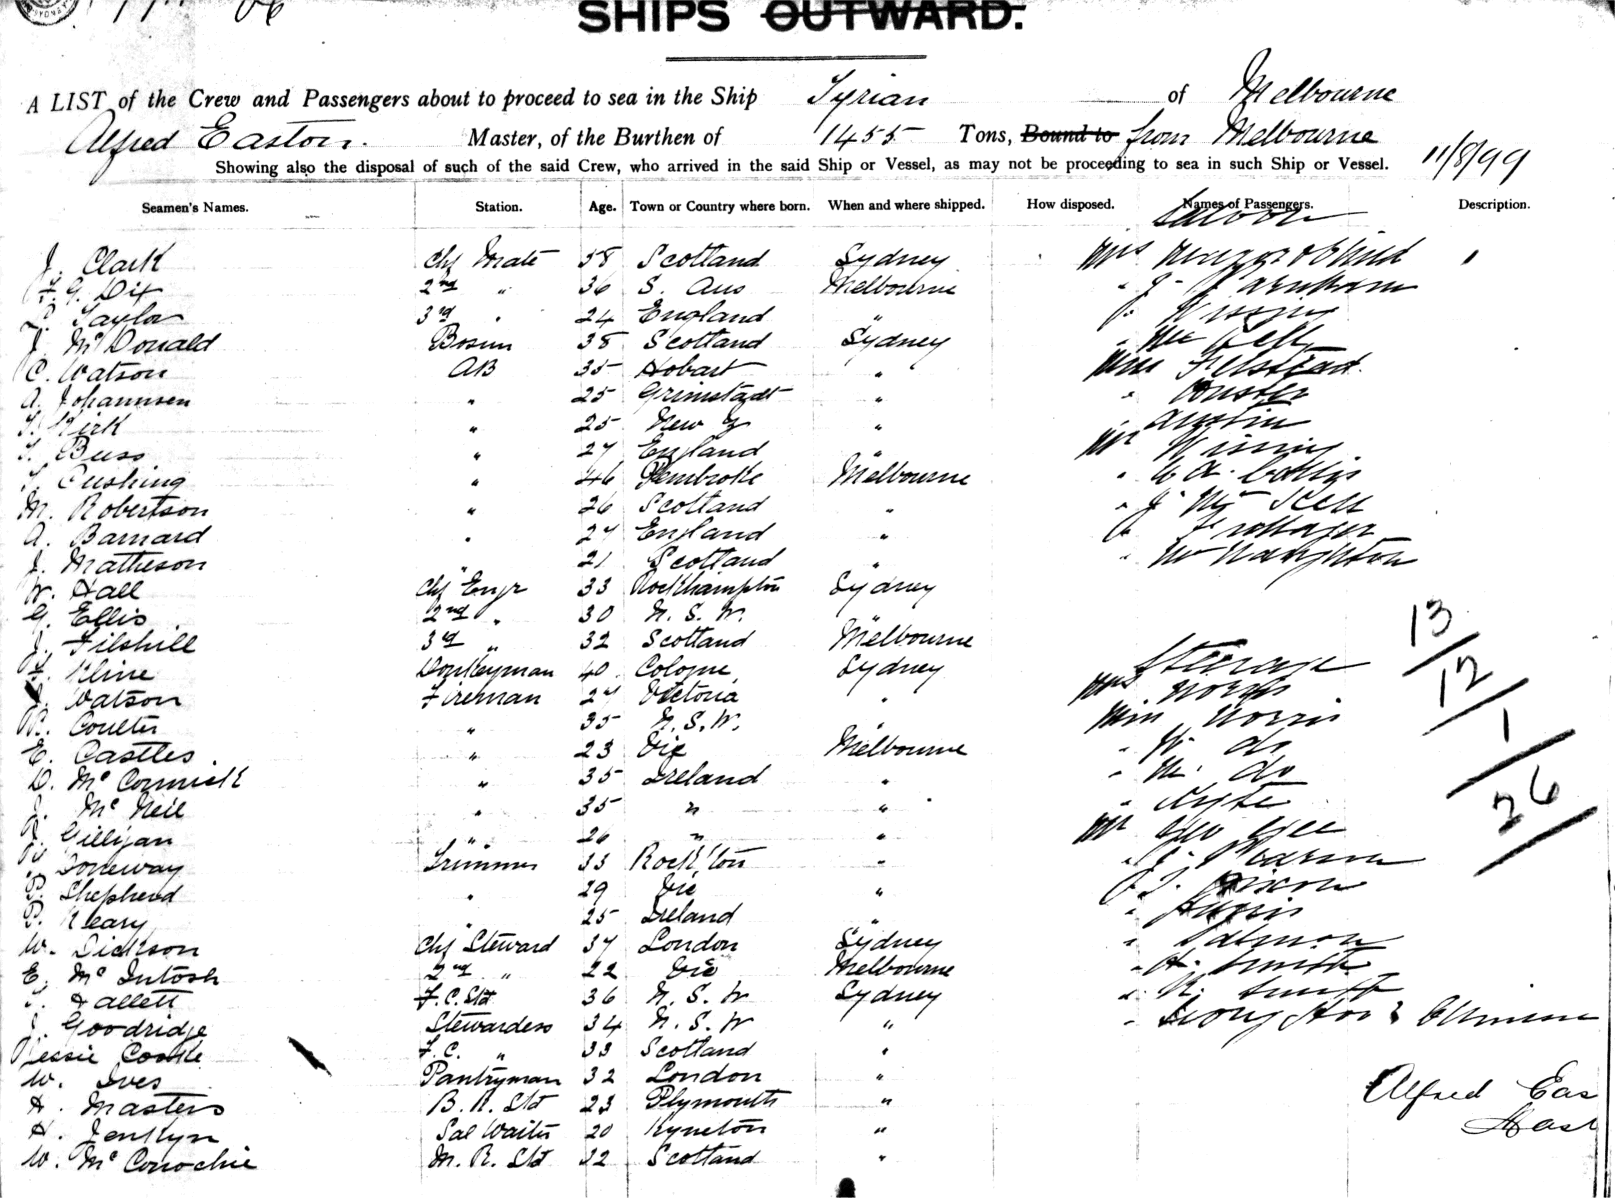 SHIPS OUTWARD.
A LIST of the Crew and Passengers about to proceed to sea in the Ship Tyrian of Melbourne
Alfred Easton. Master, of the Burthen of 1455 Tons, Bound to from Melbourne
11/8/99
Showing also the disposal of such of the said Crew, who arrived in the said Ship or Vessel, as may not be proceeding to sea in such Ship or Vessel.
Seamen's Names. Station. Age. Town or Country where born. When and where shipped. How disposed. Names of Passengers. Description.
Saloon
J. Clark Chf Mate 58 Scotland Sydney
G. Dix 2nd " 36 S. Aus Melbourne
Taylor 3rd " 24 England "
J. McDonald Bosun 38 Scotland Sydney
C. Watson AB 35 Hobart "
A. Johannsen " 25 Grimstadt "
Kirk " 25 New Z "
Buss " 27 England "
Cushing " 46 Pembroke Melbourne
M. Robertson " 26 Scotland "
A. Barnard " 27 England "
J. Matheson " 21 Scotland "
W. Hall Chf Engr 33 Rockhampton Sydney
G. Ellis 2nd " 30 N. S. W. "
J. Filshill 3rd " 32 Scotland Melbourne
Kline Donkeyman 40 Cologne Sydney
Watson Fireman 27 Victoria "
Coulter " 35 N. S. W. "
E. Castles " 23 Vic Melbourne
D. McCormick " 35 Ireland "
J. McNeil " 35 " "
Gilligan " 26 " "
Doneway Trimmer 33 Rock'ton "
Shepherd " 29 Vic "
P. Neary " 25 Ireland "
W. Dickson Chf Steward 37 London Sydney
E. McIntosh 2nd " 22 Vic Melbourne
Hallett F. C. Std 36 N. S. W Sydney
J. Goodridge Stewardess 34 N. S. W "
Jessie Cooke F. C. " 33 Scotland "
W. Ives Pantryman 32 London "
H. Masters B. R. Std 23 Plymouth "
H. Jenkyn Sal Waiter 20 Kyneton "
W. McConochie M. R. Std 32 Scotland "
Mrs & Child
" J. Farnham
Bell
Felstead
Austin
Mr
" McNaughton
Steerage
Mrs Norris
Miss Norris
" do
" M. do
Mr Geo Gee
" J. Pearson
J. Dixon
" Harris
" Salmon
" H. Smith
" Smith
13
12
1
26
Alfred Eas